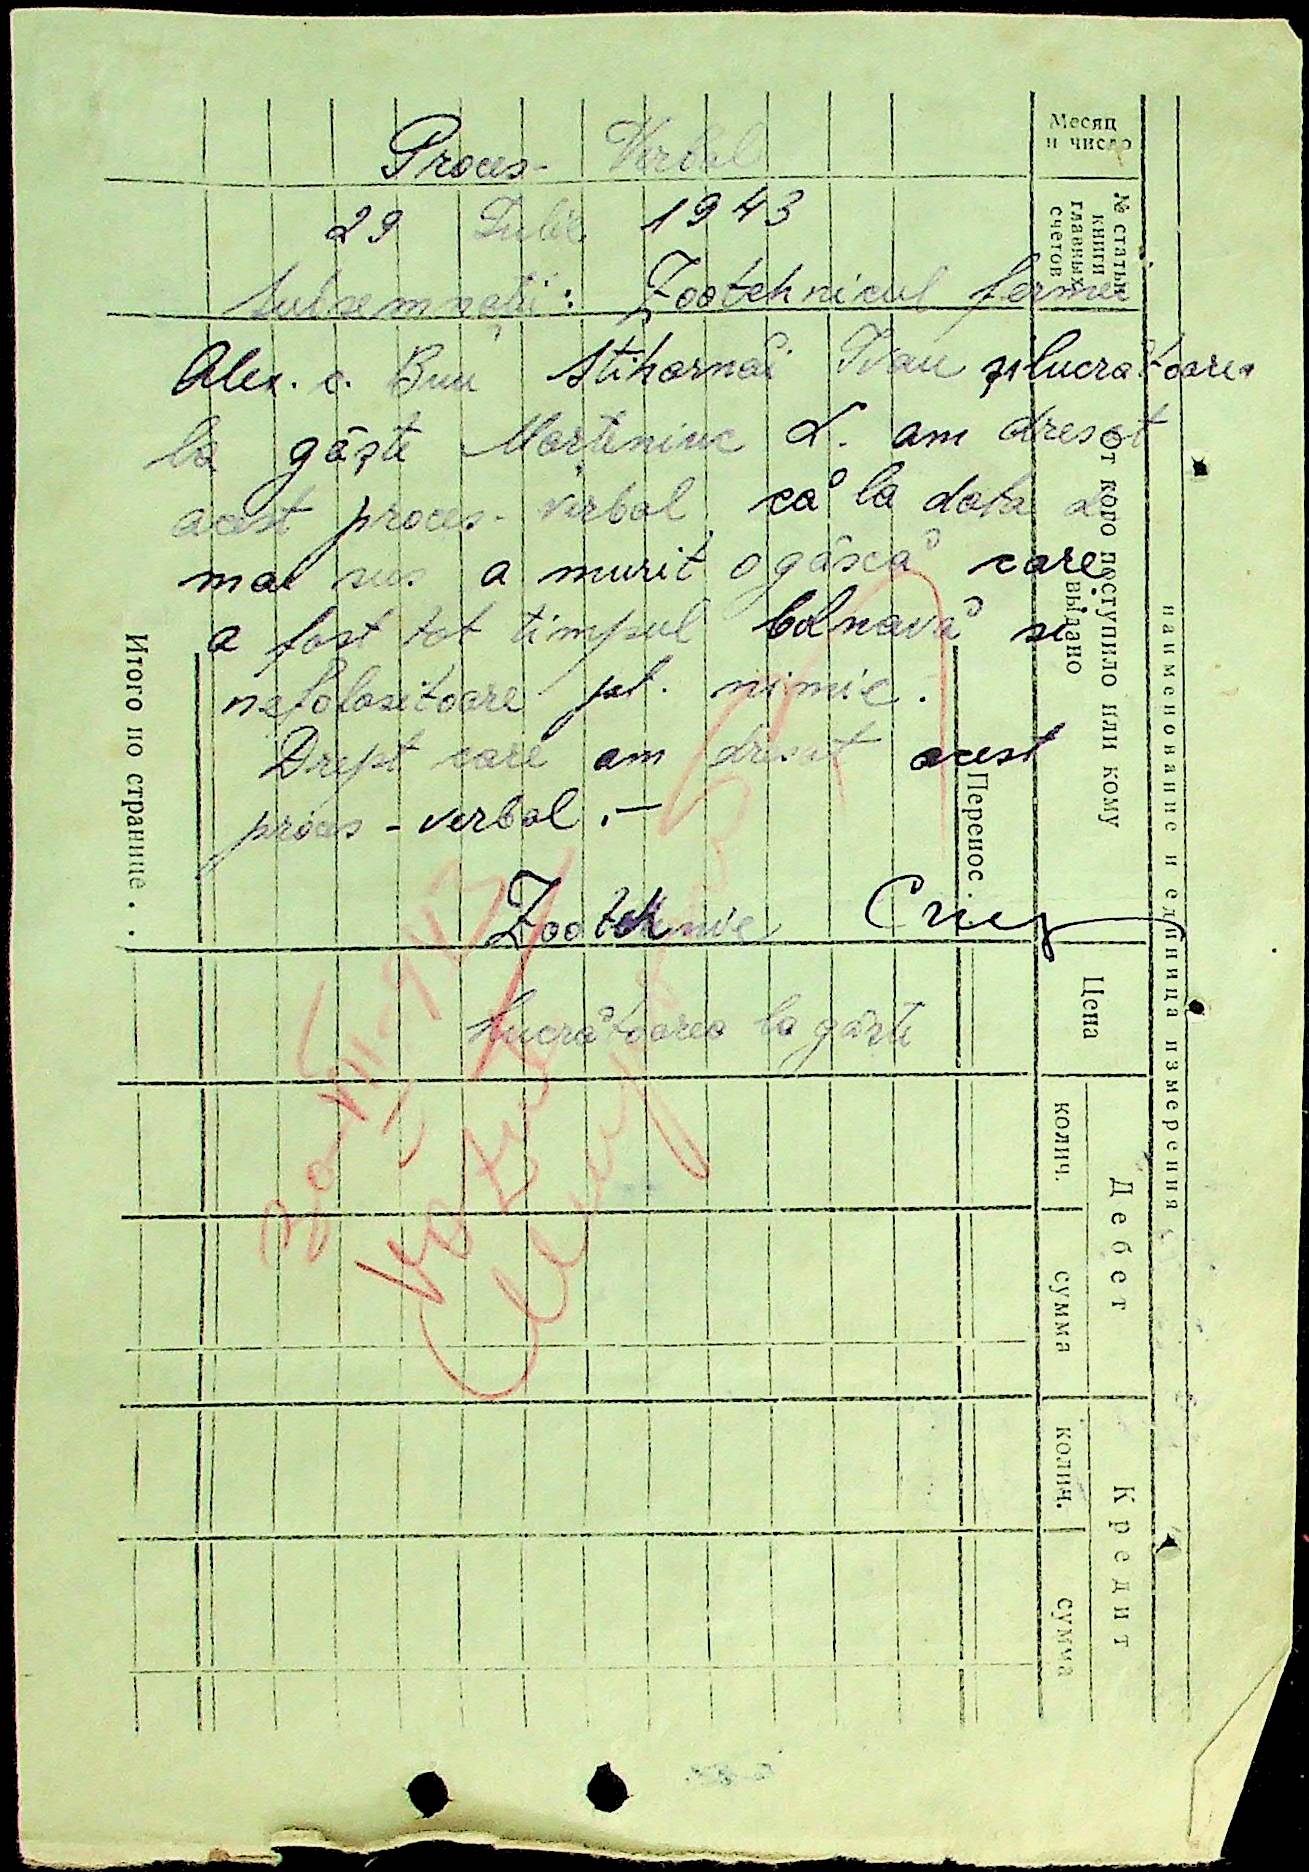 Proces- Verbal
29 Iulie 1943
Subsemnații: Zootehnicul fermei
Alex. c. Bun Stiharnâi Ivan și lucrătoarea
la gâște Marteniuc L. am dresat
acest proces-verbal, că la data de
mai sus a murit o gâscă care
a fost tot timpul bolnavă și
nefolositoare pt. nimic.
Drept care am dresat acest
proces-verbal.—
Zootehnic
Lucrătoarea la gâște
30 VII-943
Месяц
и число
№ статьи
книги
главных
счетов
От кого поступило или кому
выдано
наименование и единица измерения
Перенос .
Цена
Дебет
колич.
сумма
Кредит
колич.
сумма
Итого по странице . .